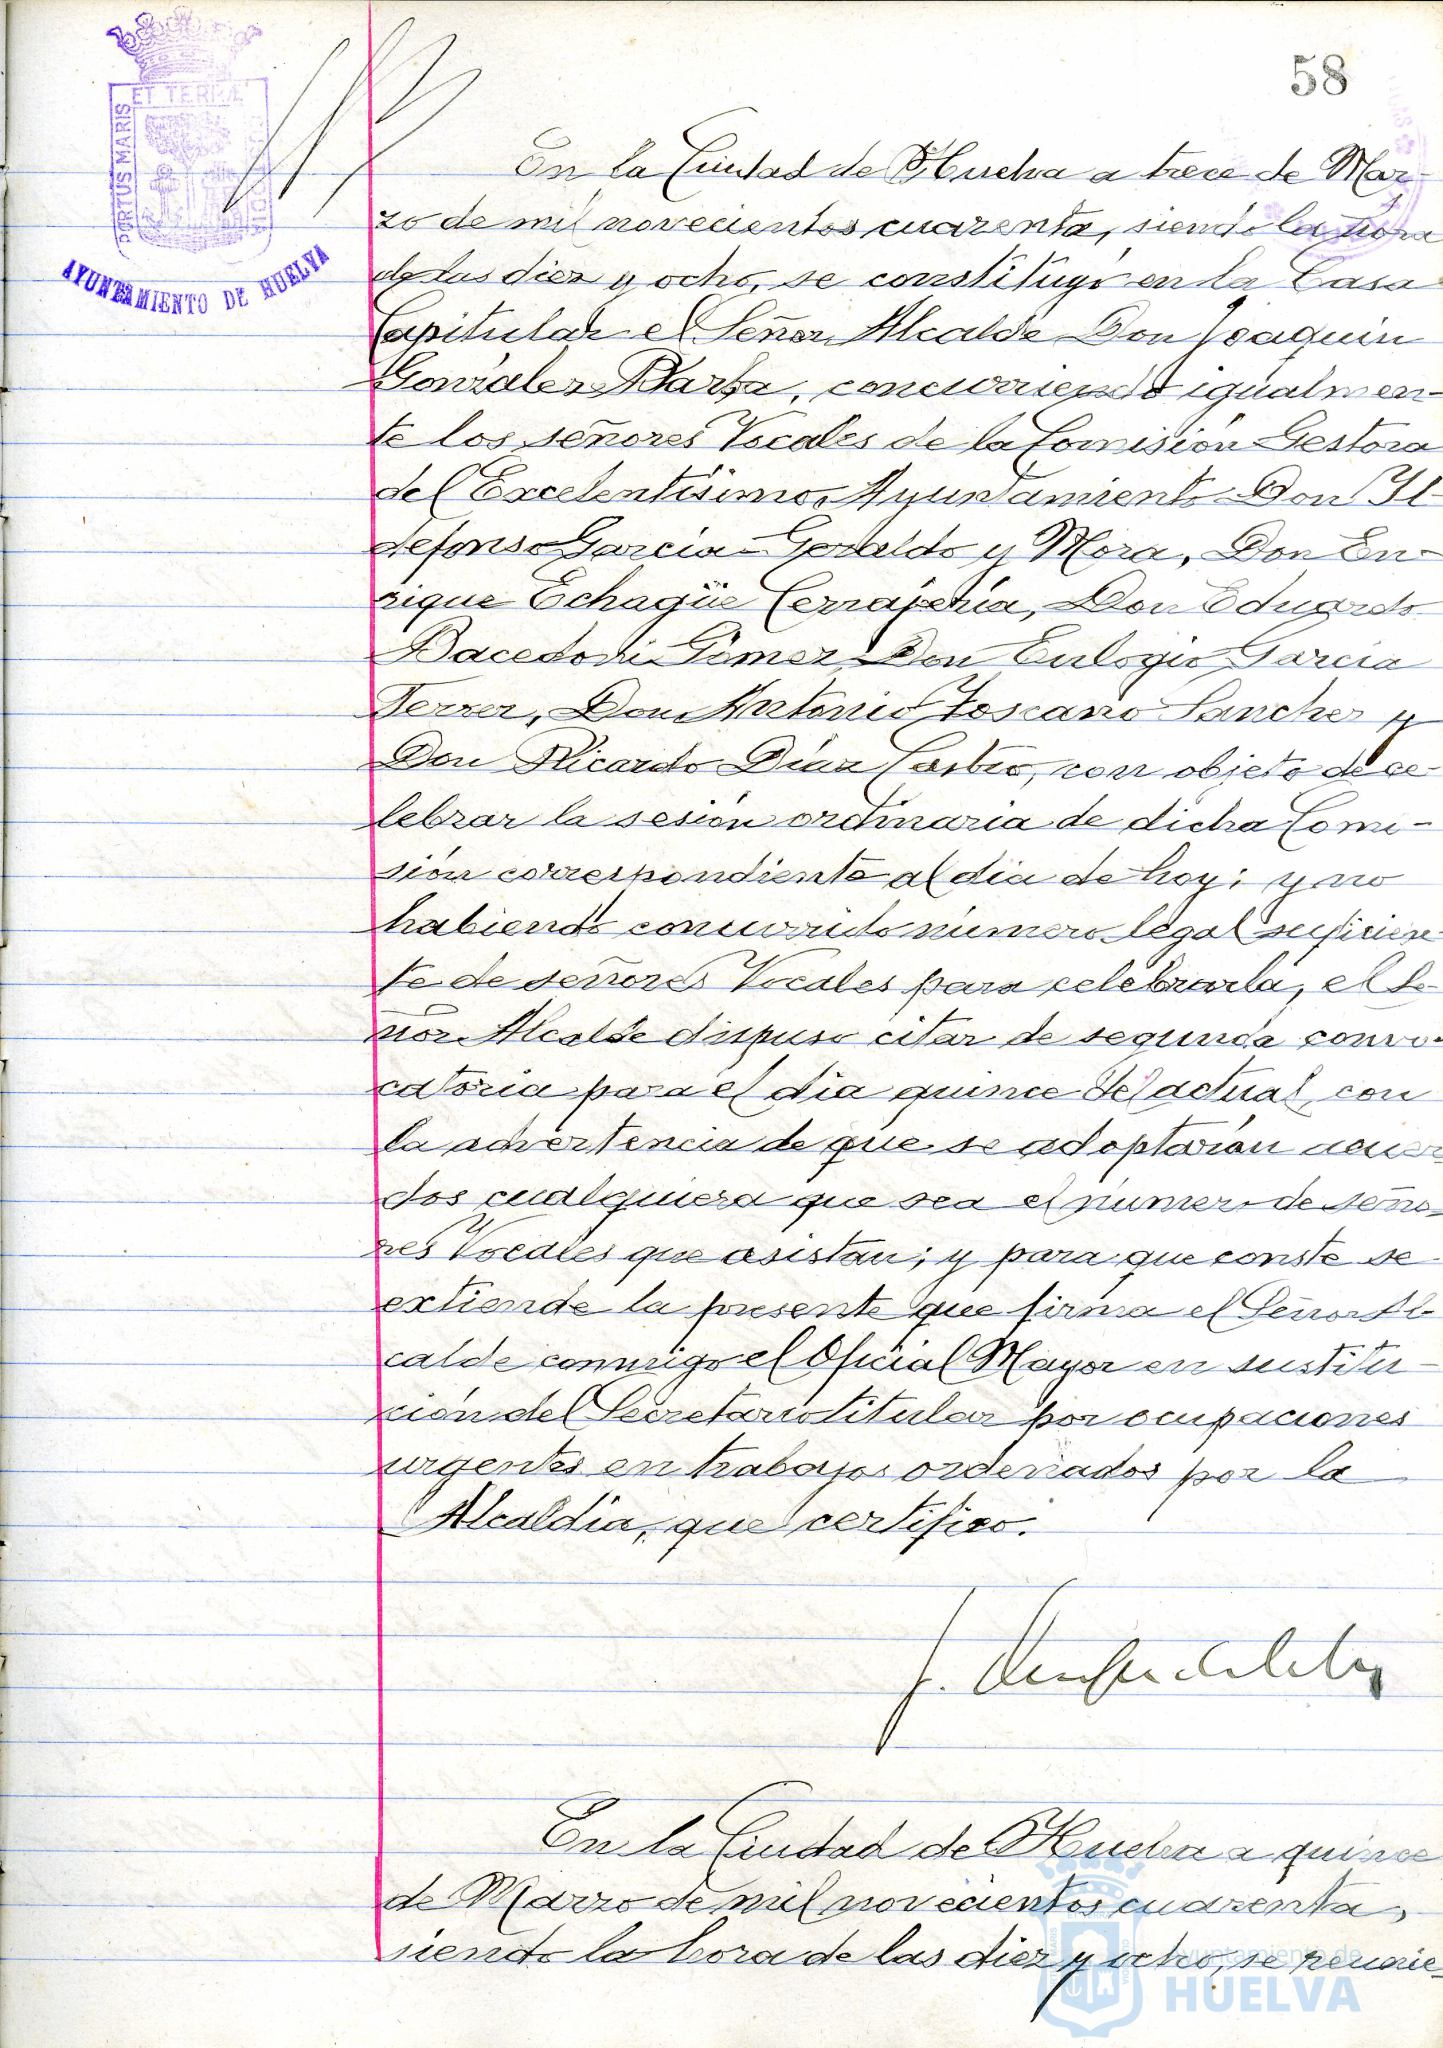 58
ET TERRÆ
PORTUS MARIS
CUSTODIA
AYUNTAMIENTO DE HUELVA
En la Ciudad de Huelva a trece de Mar-
zo de mil novecientos cuarenta, siendo la hora
de las diez y ocho, se constituyó en la Casa
Capitular el Señor Alcalde Don Joaquin
González Barba, concurriendo igualmen-
te los señores Vocales de la Comisión Gestora
del Excelentísimo Ayuntamiento Don Il-
defonso García-Geraldo y Mora, Don En-
rique Echagüe Cerrajería, Don Eduardo
Bacedoni Gómez Don Eulogio García
Ferrer, Don Antonio Toscano Sanchez y
Don Ricardo Díaz Castro, con objeto de ce-
lebrar la sesión ordinaria de dicha Comi-
sión correspondiente al dia de hoy; y no
habiendo concurrido número legal suficien-
te de señores Vocales para celebrarla, el Se-
ñor Alcalde dispuso citar de segunda convo-
catoria para el dia quince del actual, con
la advertencia de que se adoptarán acuer-
dos cualquiera que sea el número de seño-
res Vocales que asistan; y para que conste se
extiende la presente que firma el Señor Al-
calde conmigo el Oficial Mayor en sustitu-
ción del Secretario titular por ocupaciones
urgentes en trabajos ordenados por la
Alcaldía, que certifico.
En la Ciudad de Huelva a quince
de Marzo de mil novecientos cuarenta,
siendo la hora de las diez y ocho, se reunie-
Ayuntamiento de
HUELVA